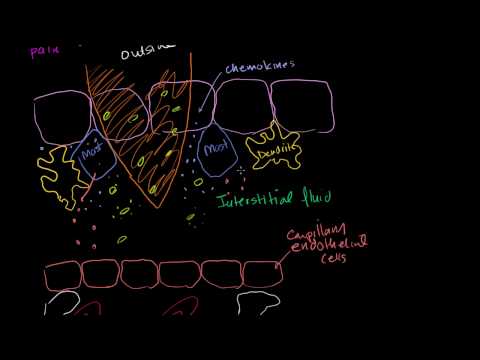 pain
outside
chemokines
Mast
Mast
Dendrite
Interstitial fluid
Capillary
endothelial
cells